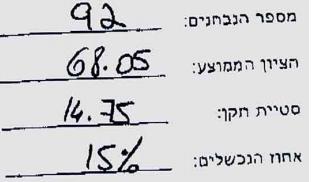 מספר הנבחנים: 92
הציון הממוצע: 68.05
סטיית תקן: 14.75
אחוז הנכשלים: 15%